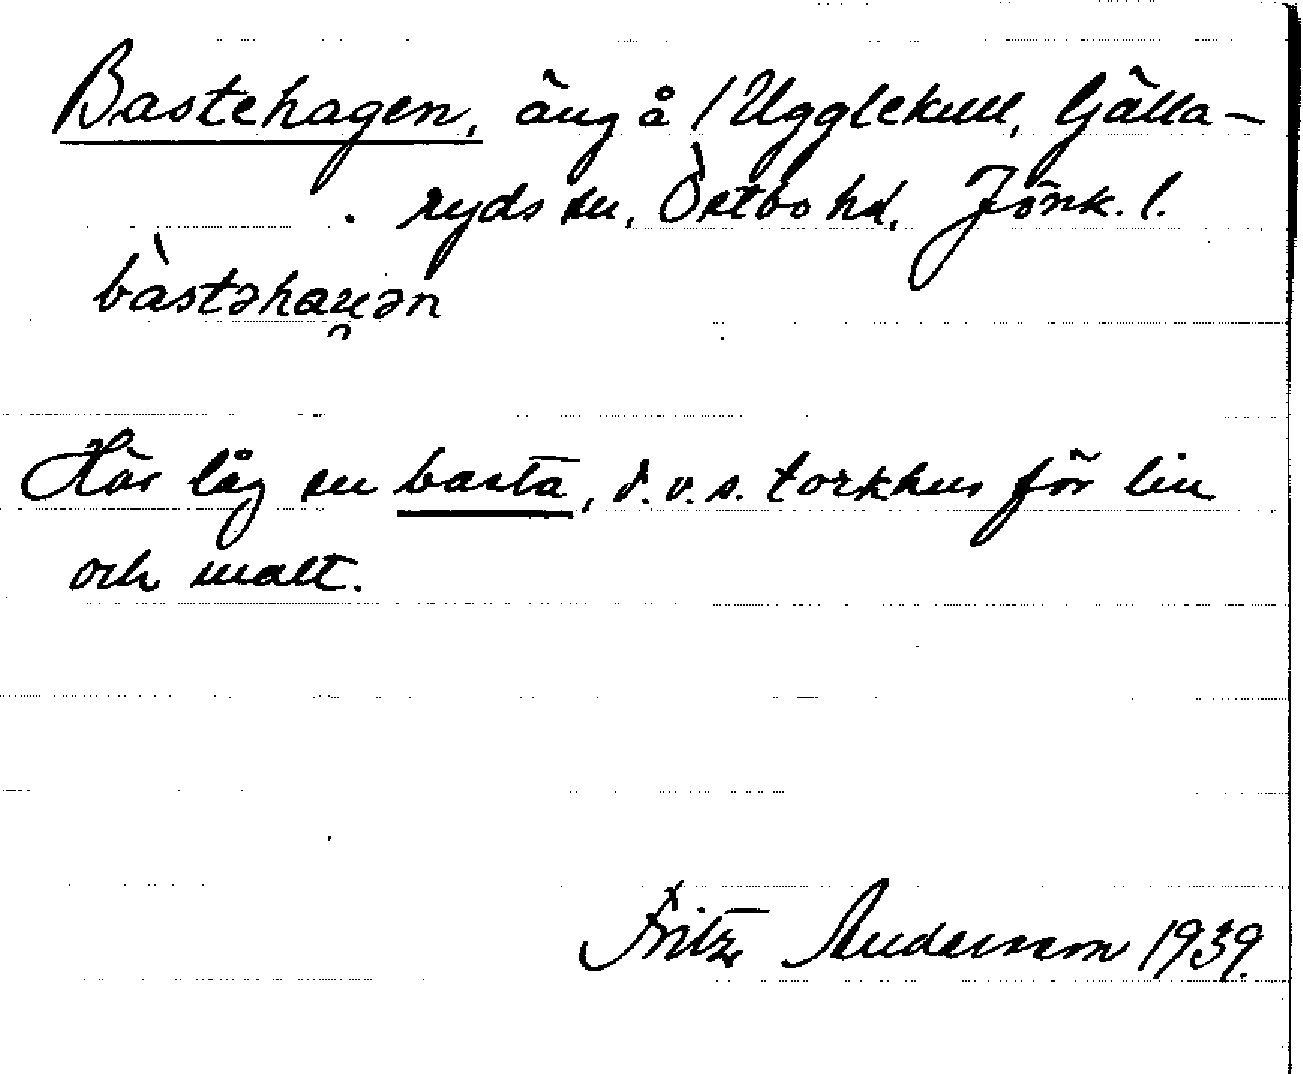 Bastehagen, äng å / Ugglekull, Gälla-
ryds sn, Östbo hd, Jönk. l.
bàstəhaɡən
Här låg en basta, d.v.s. torkhus för lin
och malt.
Fritz Andersson 1939.